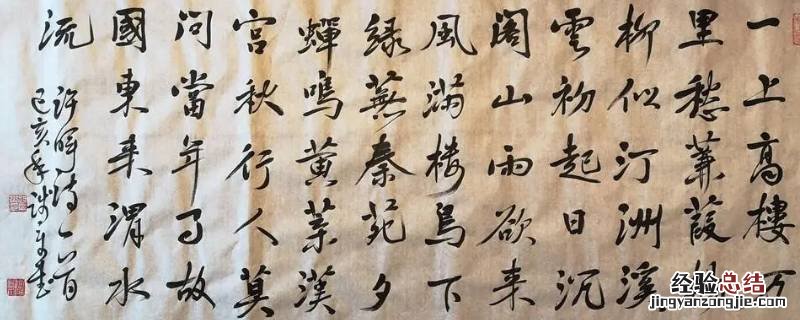 一上高樓万
里愁蒹葭
柳似汀洲溪
雲初起日沉
阁山雨欲来
風滿樓鳥下
緑蕪秦苑夕
蟬鳴黄葉漢
宫秋行人莫
问當年事故
國東来渭水
流
许暉诗一首
己亥
经验总结
jingyanzongjie.com